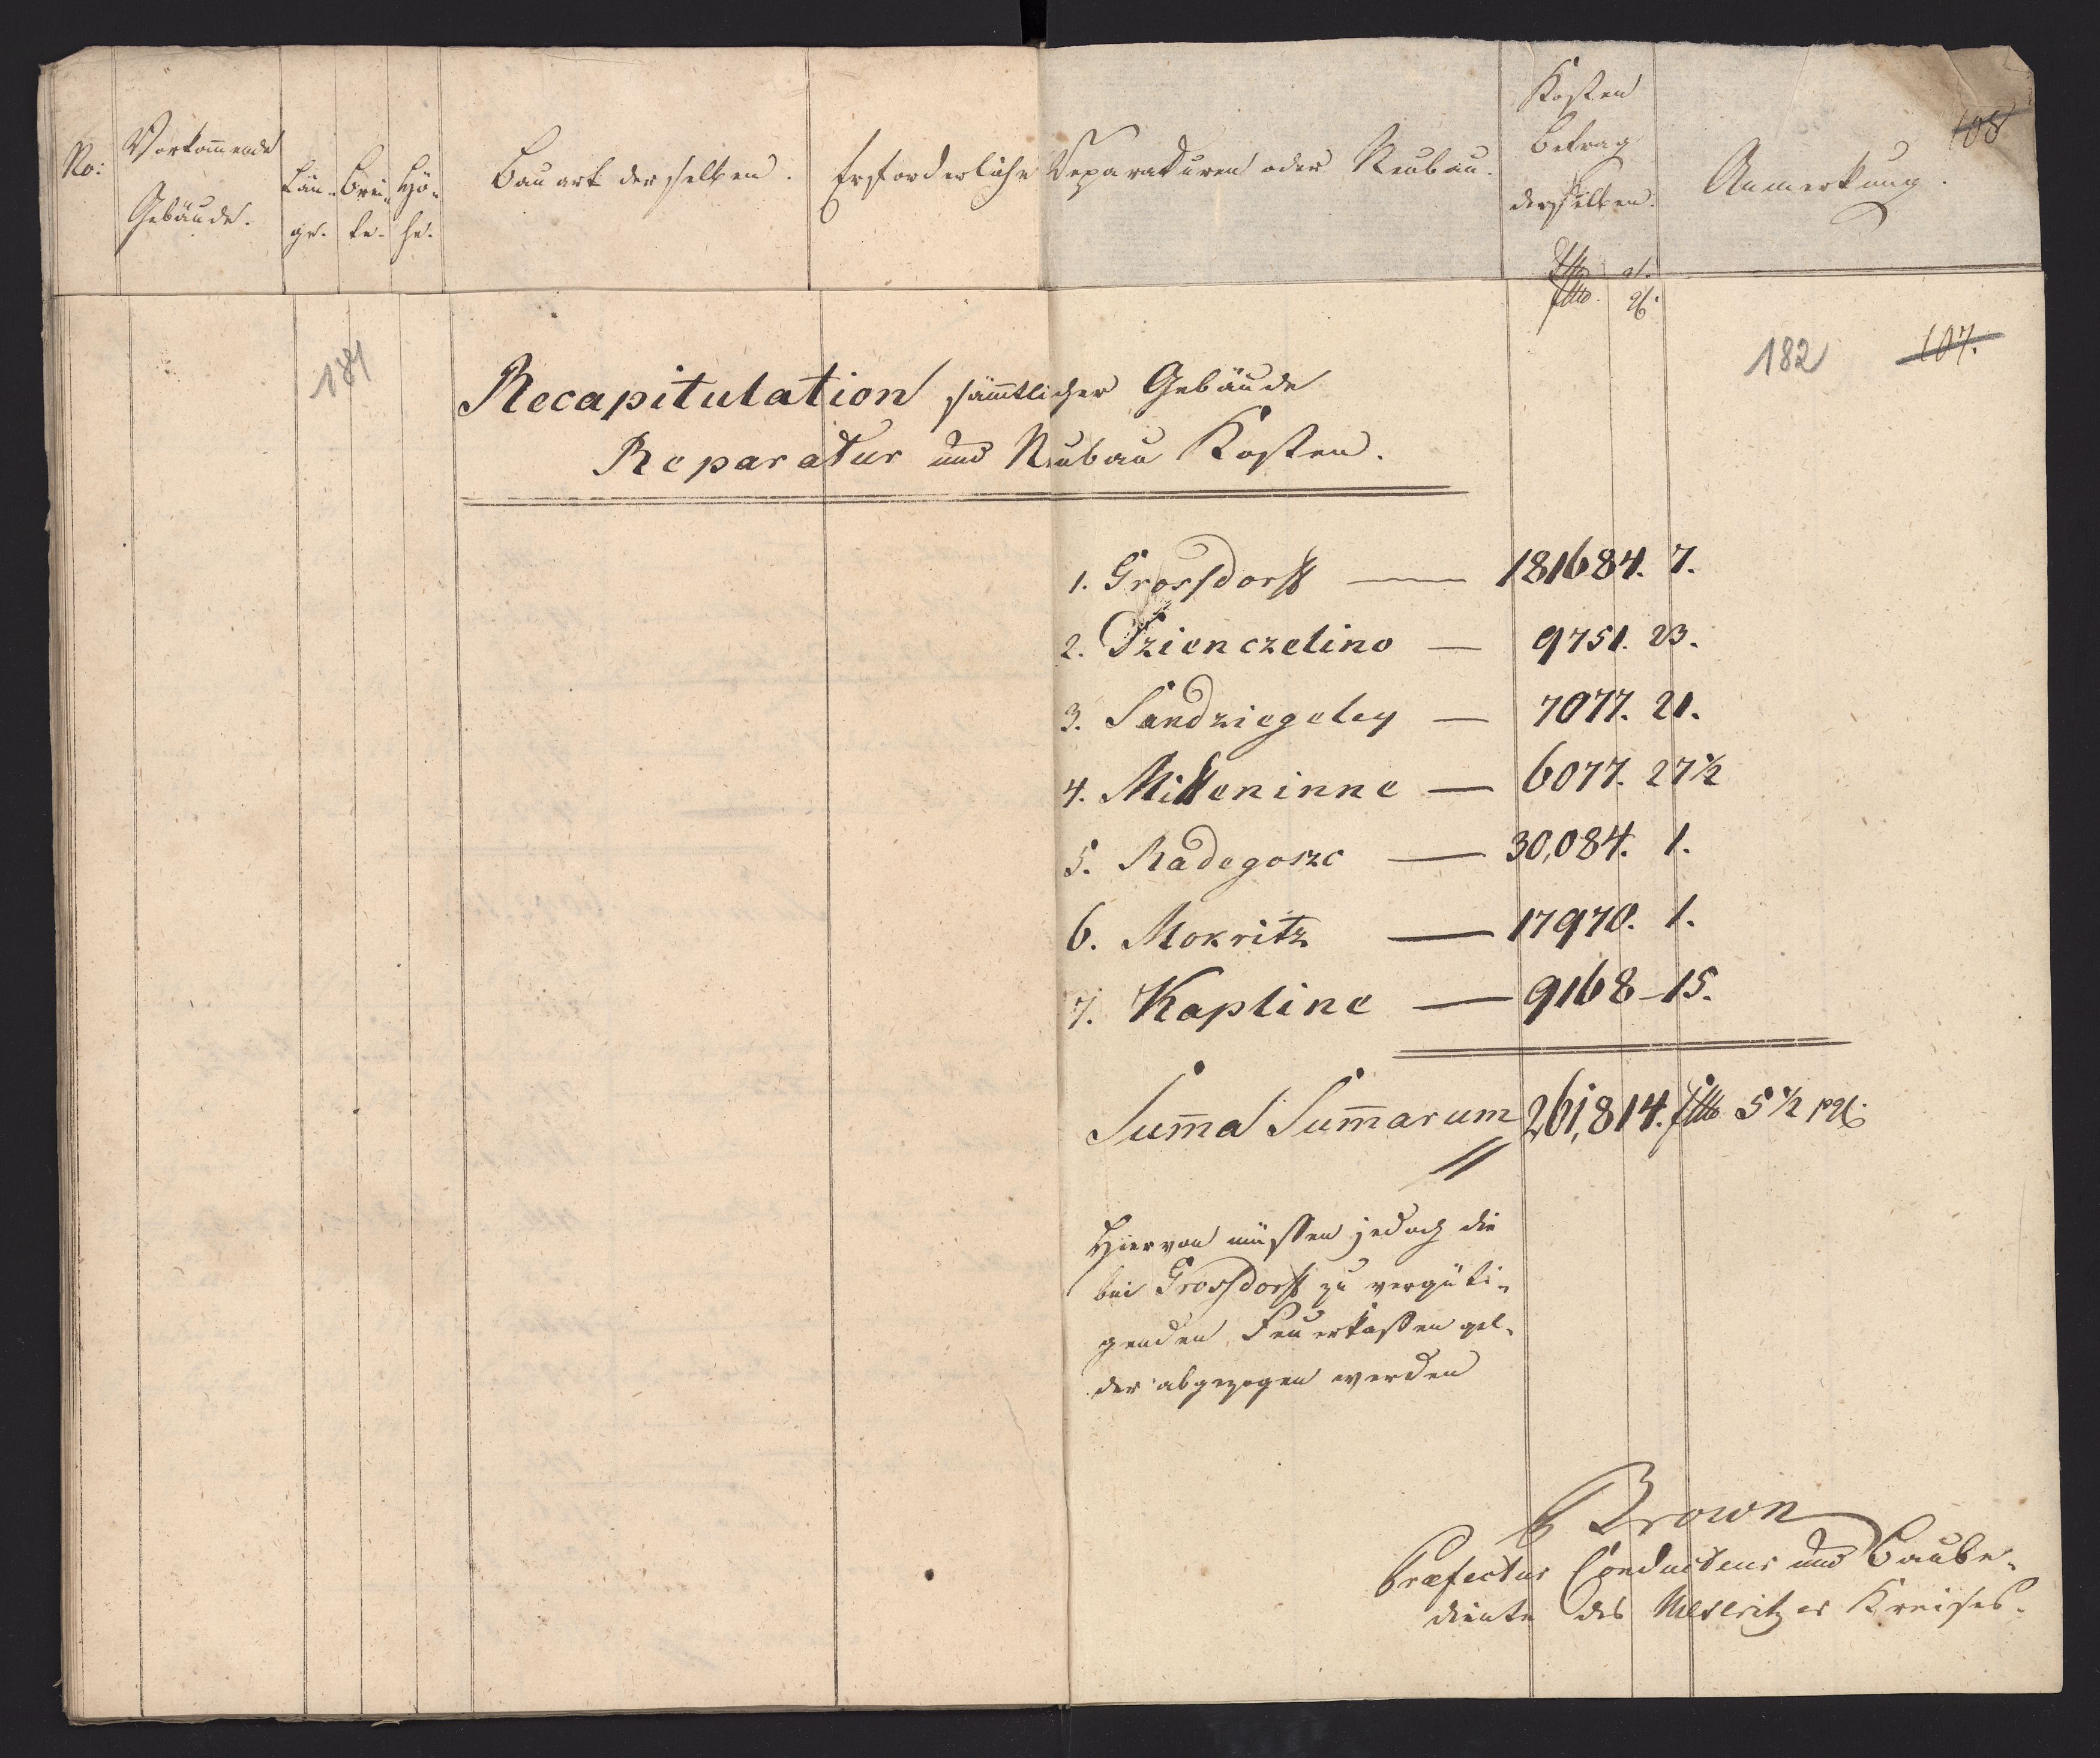 No:
Vorkom̅ende
Gebäude.
Län-
ge.
Brei-
te.
Hö-
he.
Bauart derselben.
Erforderliche Reparaturen oder Neubau.
Kosten
Betrag
derselben.
Anmerkung.
108
181
182
107.
Recapitulation säm̅tlicher Gebäude
Reparatur und Neubau Kosten.
1. Grossdorff — 181684. 7.
2. Dzienczelino — 9751. 23.
3. Sandziegeley — 7077. 21.
4. Mitteninne — 6077. 27 ½
5. Radegoszc — 30,084. 1.
6. Mokritz — 17970. 1.
7. Kapline — 9168 - 15.
Sum̅a Sum̅arum 261,814. 5 ½
Hiervon müssen jedoch die
bei Grossdorff zu vergüti-
genden Feuerkassen gel-
der abgezogen werden
Brown
Præfectur Conducteur und Baube-
diente des Meseritzer Kreises.